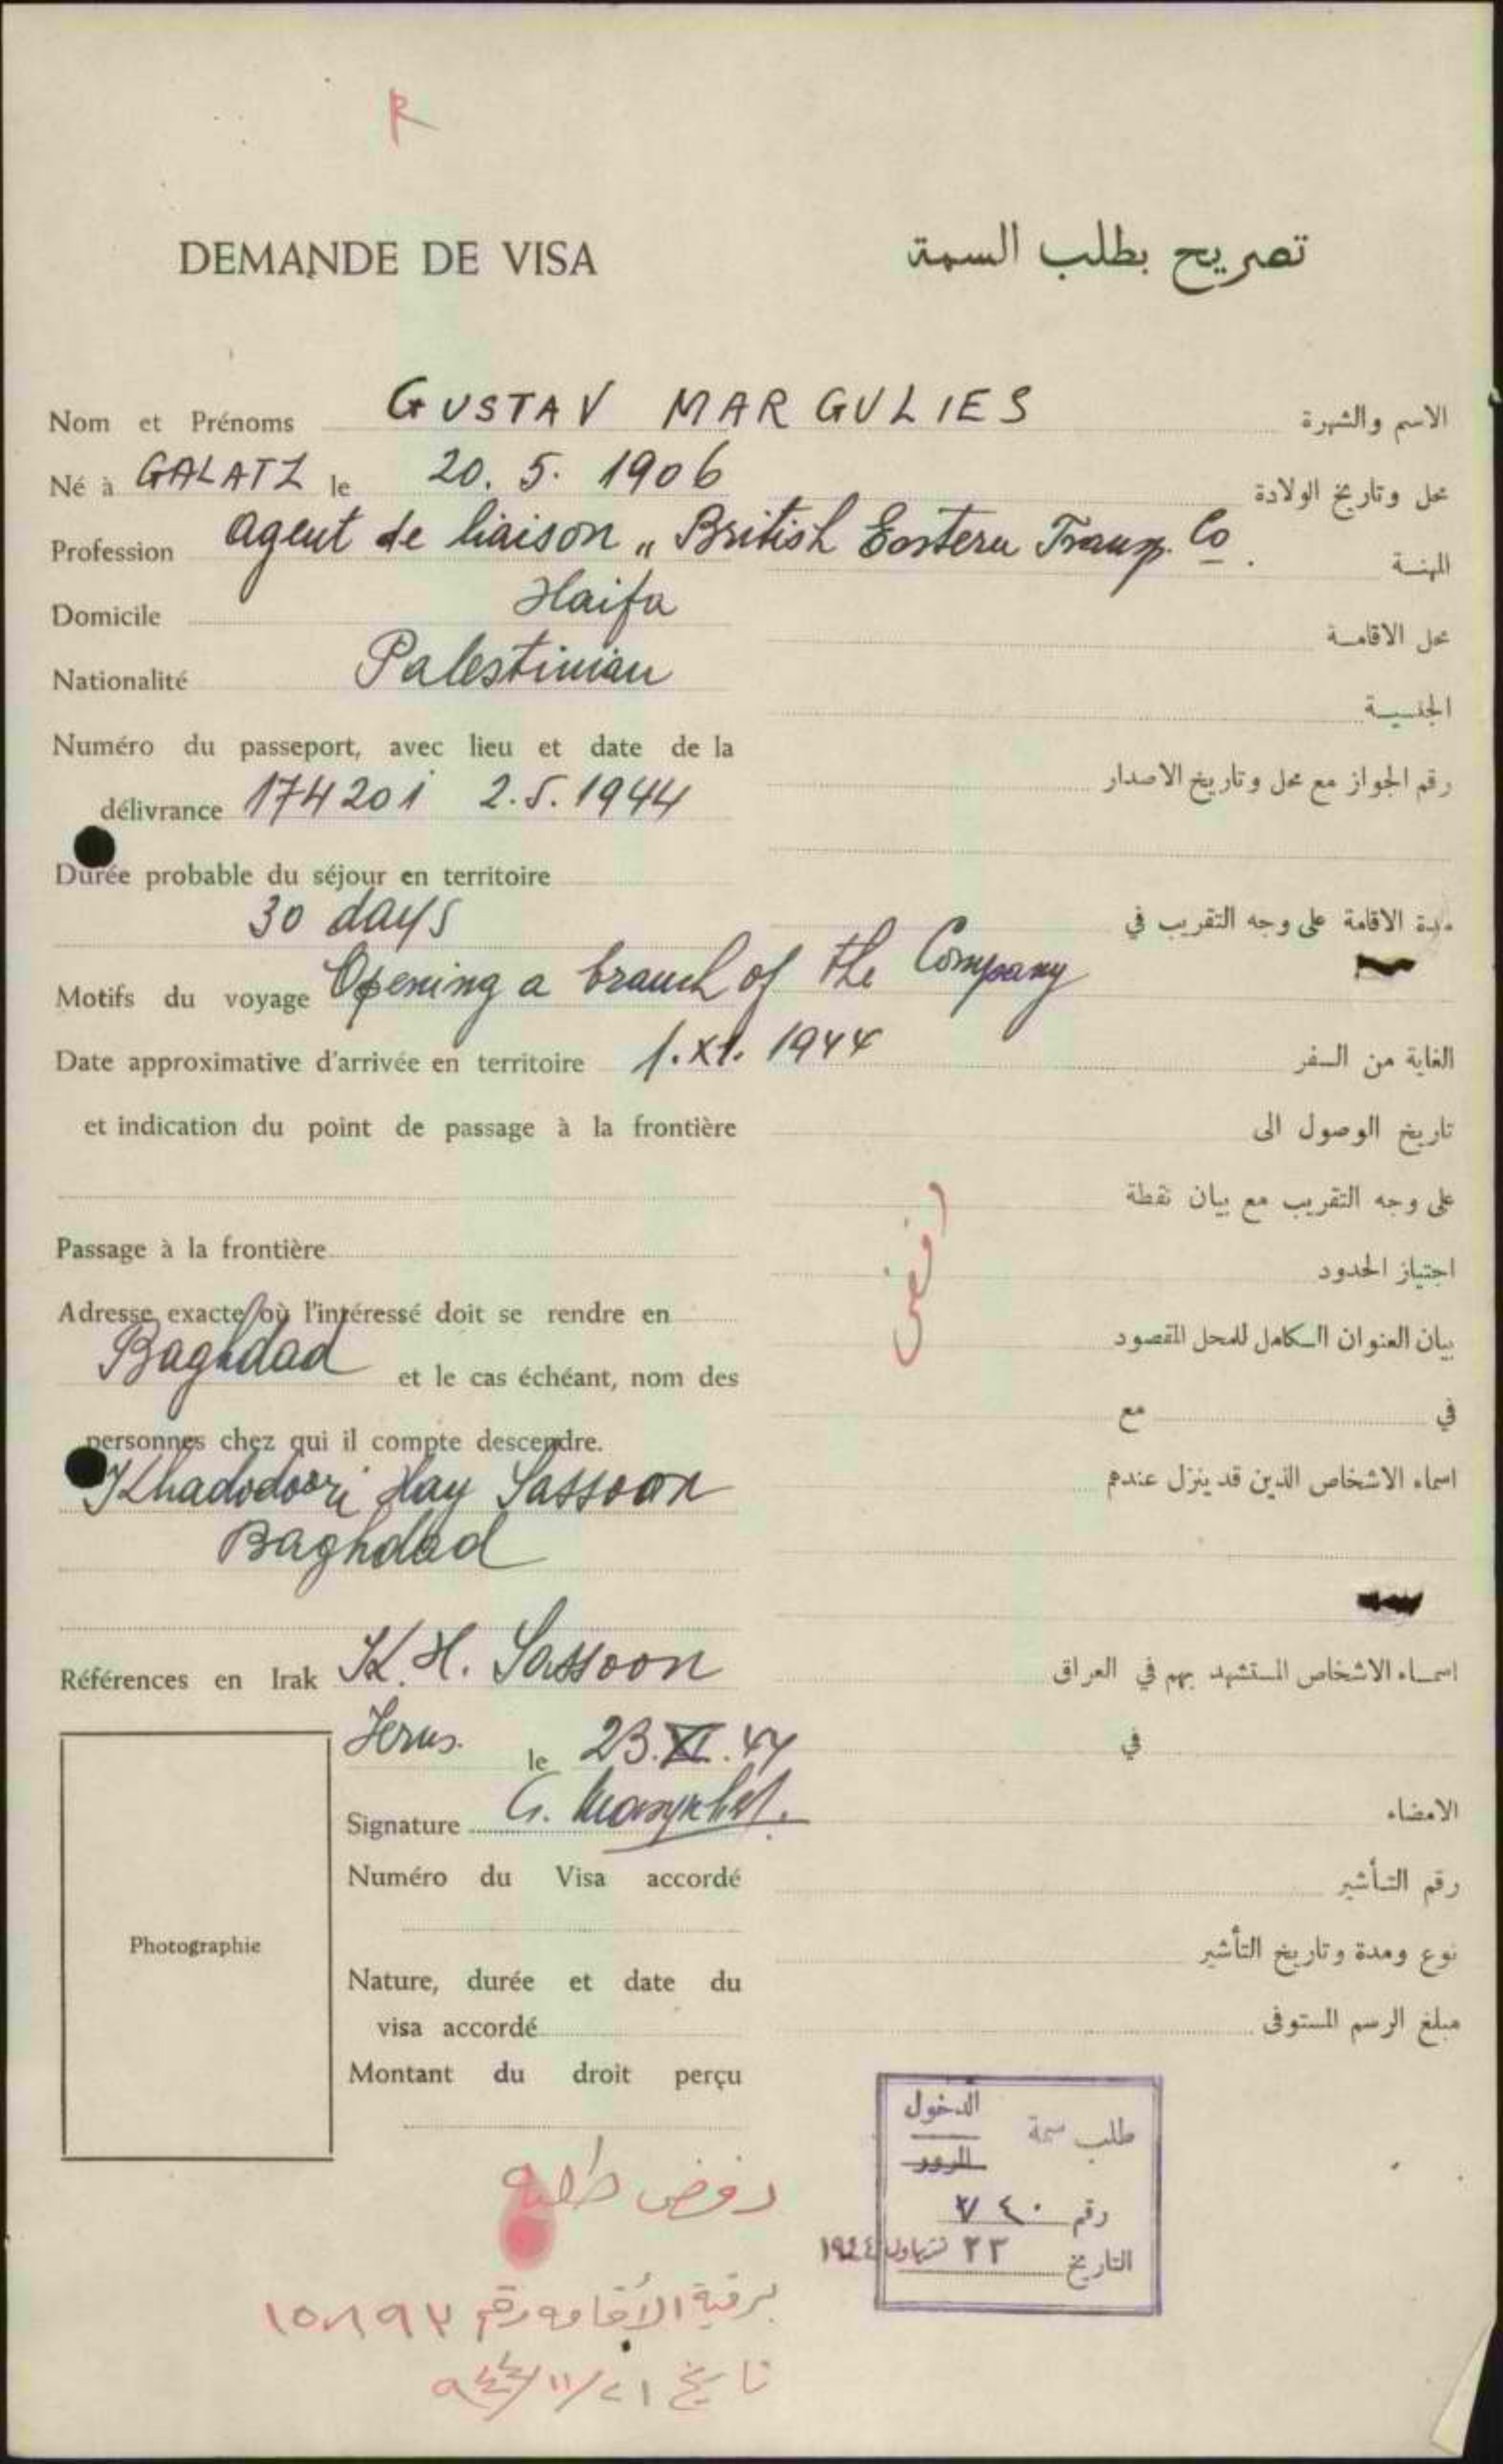 R
DEMANDE DE VISA تصريح بطلب السمة
Nom et Prénoms GUSTAV MARGULIES الاسم والشهرة
Né à GALATZ le 20. 5. 1906 محل وتاريخ الولادة
Profession agent de liaison „ British Eastern Transp. Co. المهنة
Domicile Haifa محل الاقامة
Nationalité Palestinian الجنسية
Numéro du passeport, avec lieu et date de la
délivrance 174201 2.5.1944 رقم الجواز مع محل وتاريخ الاصدار
Durée probable du séjour en territoire
30 days مدة الاقامة على وجه التقريب في
Motifs du voyage Opening a branch of the Company
Date approximative d'arrivée en territoire 1.XI. 1944 الغاية من السفر
et indication du point de passage à la frontière تاريخ الوصول الى
على وجه التقريب مع بيان نقطة
Passage à la frontière اجتياز الحدود
رفض
Adresse exacte où l'intéressé doit se rendre en بيان العنوان الكامل للمحل المقصود
Baghdad et le cas échéant, nom des
في مع
personnes chez qui il compte descendre.
Khadodoori Hay Sassoon اسماء الاشخاص الذين قد ينزل عندهم
Baghdad
Références en Irak K. H. Sassoon اسماء الاشخاص المستشهد بهم في العراق
Jerus. le 23.XI.44 في
Signature الامضاء
Numéro du Visa accordé رقم التأشير
Photographie
Nature, durée et date du نوع ومدة وتاريخ التأشير
visa accordé مبلغ الرسم المستوفى
Montant du droit perçu
طلب سمة الدخول
المرور
رقم ٧٤٠
التاريخ ٢٣ ١٩٤٤
رفض طلبه
برقية الأقامه رقم
تاريخ ٢١/١١/٩٤٤